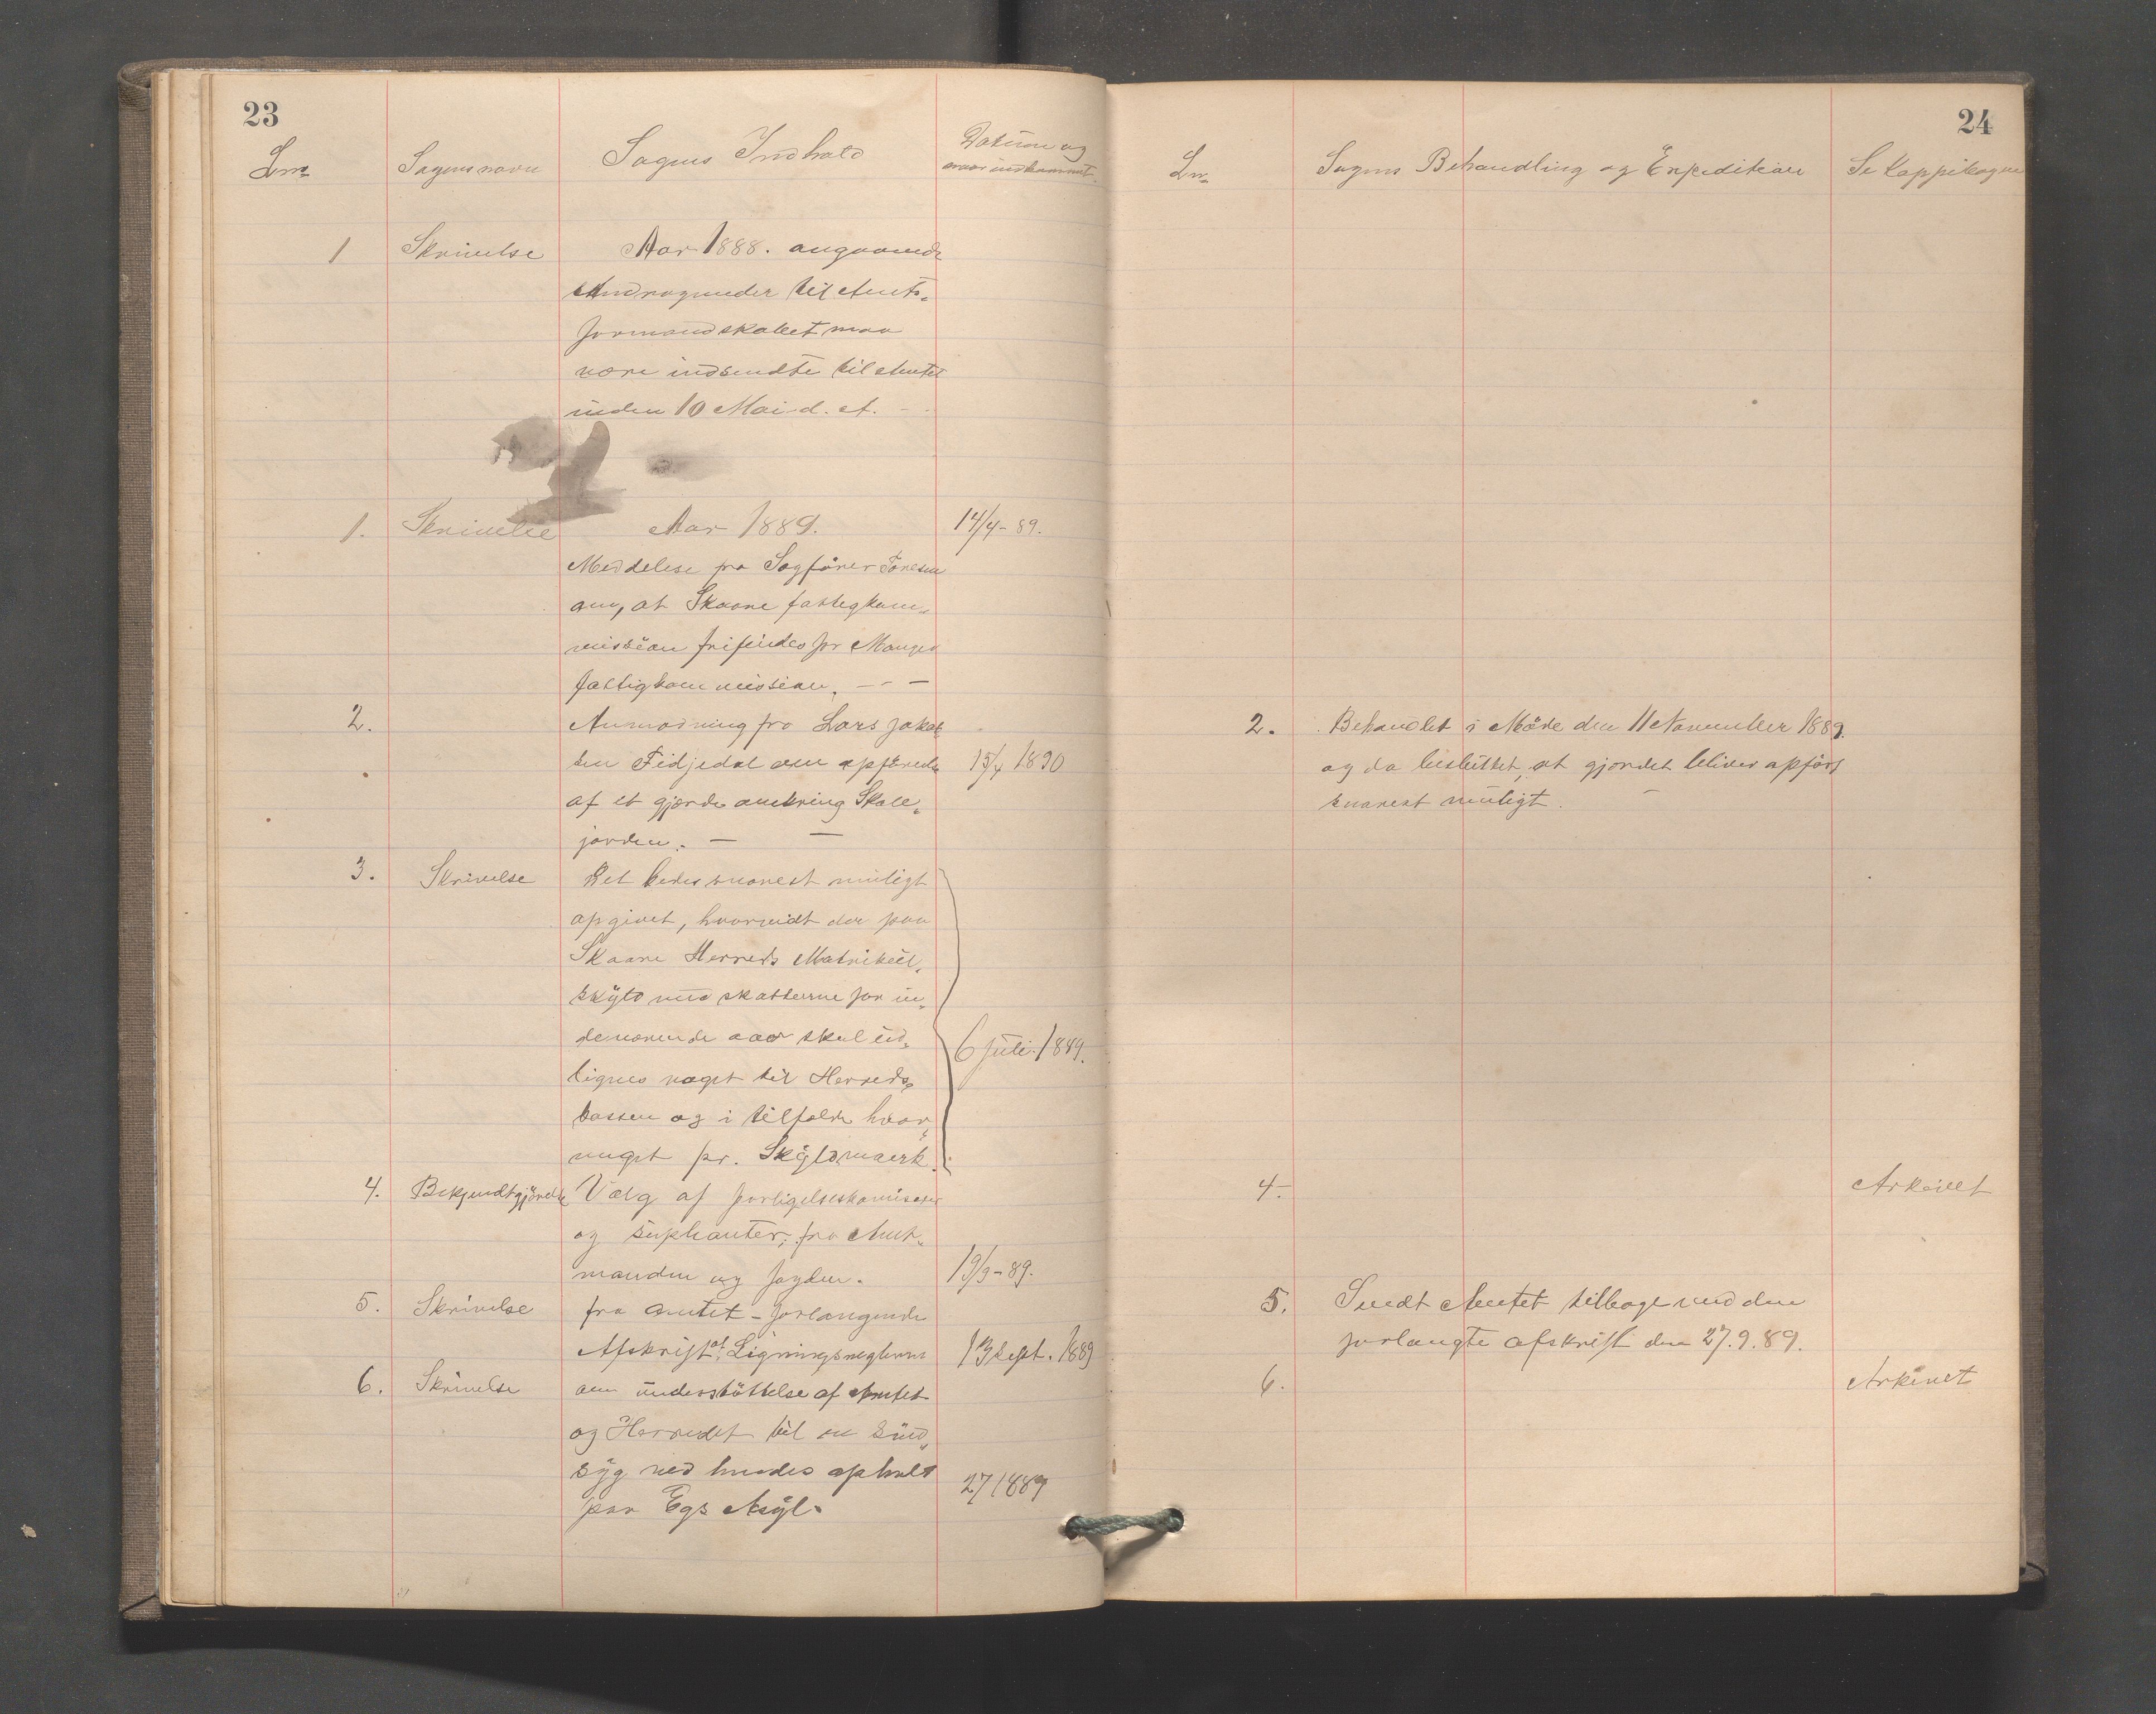 23
Lnr. Sagens navn Sagens Indhold Datum og
naar indkommet.
1 Skrivelse Aar 1888. angaaende
Andragender til Amts-
formandskabet maa
være indsendte til Amtet
inden 10 Mai d. A. -
1. Skrivelse Aar 1889. 14/4-89.
Meddelese fra Sagförer Tönesen
om, at Skaare fattigkom-
mission frifindes for Manger
fattigkommission. - - -
2. Anmodning fra Lars Jakob-
sen Fidjedal om opförende 15/4 1890
af et gjærde omkring Skole-
jorden. - -
3. Skrivelse Det bedes snarest muligt
opgivet, hvorvidt der paa
Skaare Herreds Matrikül-
skyld med skatterne for in-
deværende aar skal üd-
lignes noget til Herreds- 6 Juli 1889.
kassen og i tilfælde hvor-
meget pr. Skyldmaerk.
4. Bekjendtgjörelse Valg af forligelseskomisærer
og süpleanter, fra Amt-
manden og fogden. 19/9-89.
5. Skrivelse fra Amtet - forlangende
Afskrift af Ligningsreglerne 13 Sept. 1889
6. Skrivelse om understöttelse af Amtet
og Herredet til en Sind-
syg ved hendes ophold 27/1889
paa Egs Asyl.
24
Lnr. Sagens Behandling og Expedition Se Koppibogen
2. Behandlet i Möde den 11 November 1889.
og da beslüttet, at gjærdet bliver opfört
snarest muligt.
4. Arkivet
5. Sendt Amtet tilbage med den
forlangte afskrift den 27.9.89.
6. Arkivet